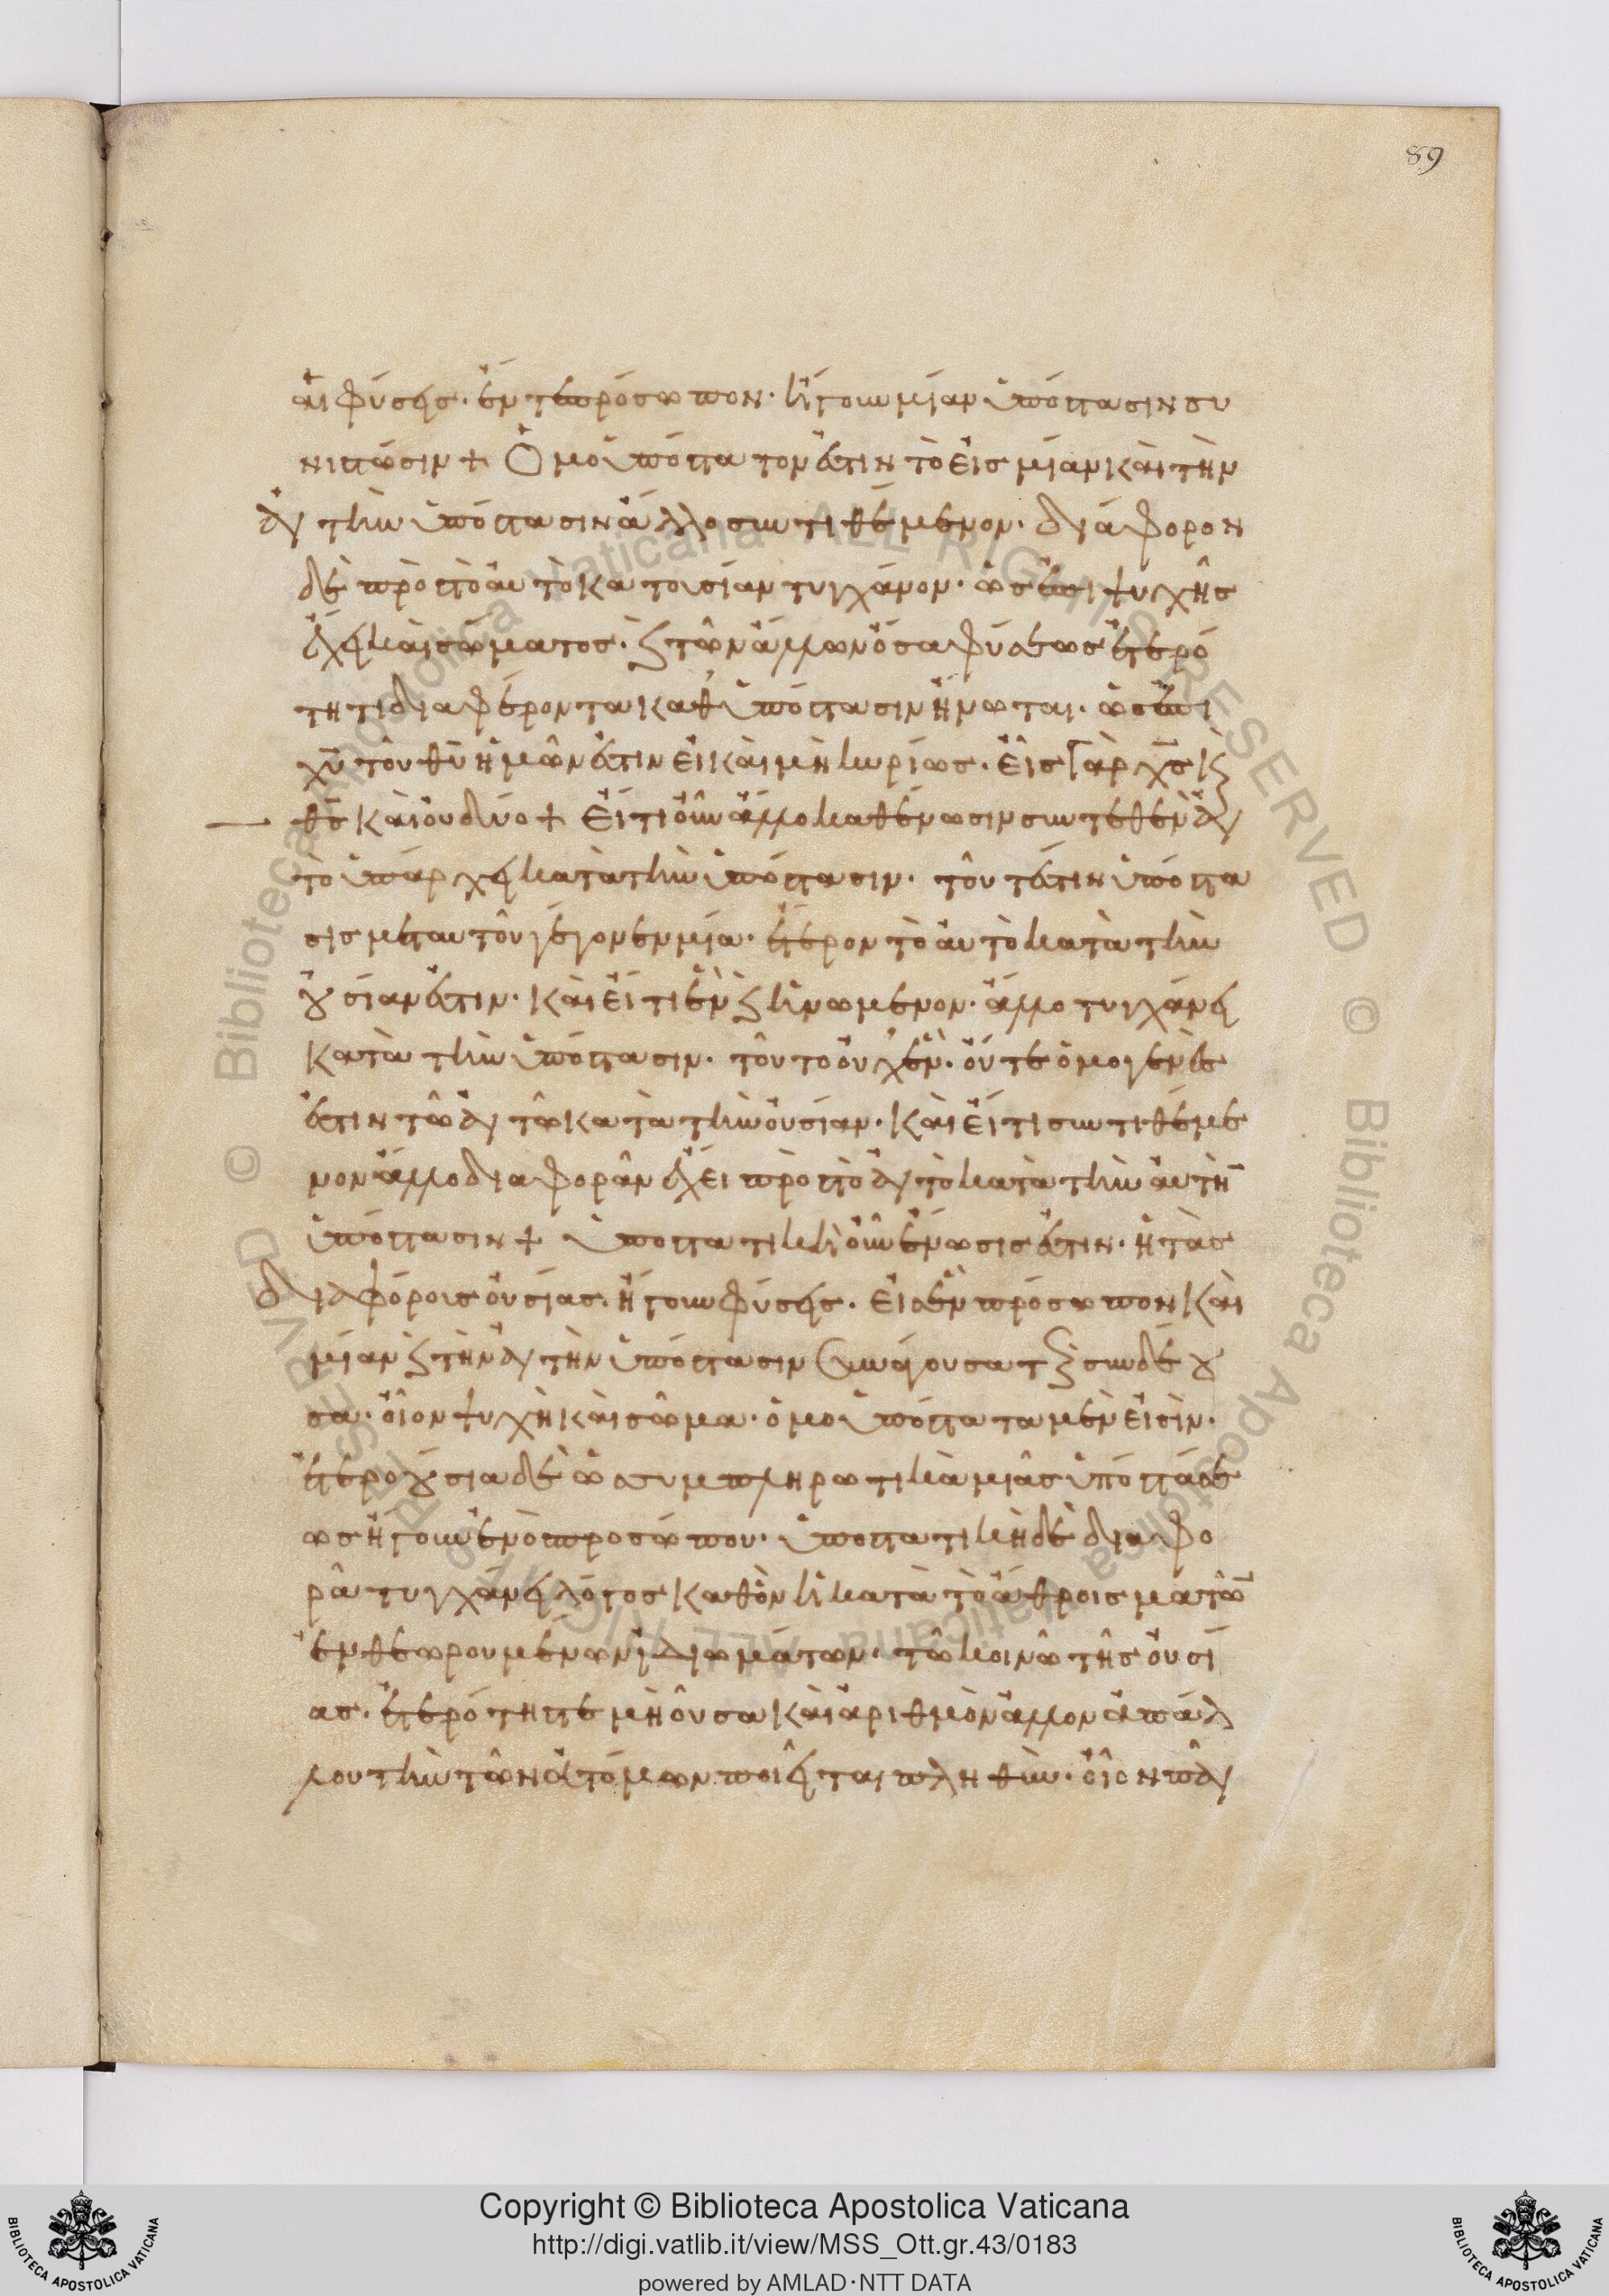 89
αἱ φύσεις· ἕν τε πρόσωπον· ἤγουν μίαν ὑπόστασιν συ
νιστῶσιν + Ὁμοϋπόστατον ἐστιν τὸ εἰς μίαν καὶ τὴν
αὐτὴν ὑπόστασιν ἄλλο συντιθέμενον· διάφορον
δὲ πρὸς τὸ αὐτὸ κατ οὐσίαν τυγχάνον· ὡς ἐπι ψυχῆς
ἔχει καὶ σώματος· καὶ τῶν ἄλλων ὅσα φύσεως ἑτερό
τητι διαφέροντα καθ ὑπόστασιν ἥνωται· ὡς ἐπὶ
χυ τοῦ θυ ἡμῶν ἐστιν εἰ καὶ μὴ κυρίως· εἷς γὰρ χς κ
θς καὶ οὐ δύο + Εἴ τι οὖν ἄλλο καθ ἕνωσιν συντεθὲν αὐ
τὸ ὑπάρχει κατὰ τὴν ὑπόστασιν· τοῦτ ἔστιν ὑπόστα
σις μετ αὐτοῦ γέγονεν μία· ἕτερον τὸ αὐτὸ κατὰ τὴν
οὐσίαν ἐστιν· καὶ εἴ τι ἓν καὶ ἡνωμένον· ἄλλο τυγχάνει
κατὰ τὴν ὑπόστασιν· τοῦτο οὐχ ἕν· οὔτε ὁμογενὲς
ἐστιν τῶ αὐτῶ κατὰ τὴν οὐσίαν· καὶ εἴ τι συντιθέμε
νον ἄλλο διαφορὰν ἔχει πρὸς τὸ αὐτὸ κατὰ τὴν αὐτὴν
ὑπόστασιν + Ὑποστατικὴ οὖν ἕνωσις ἐστιν· ἡ τὰς
διαφόροις οὐσίας· ἤγουν φύσεις· εἰς ἓν πρόσωπον καὶ
μίαν καὶ τὴν αὐτὴν ὑπόστασιν συνάγουσα τε καὶ συνδέου
σα· οἷον ψυχὴ καὶ σῶμα· ὁμοϋπόστατα μὲν εἰσὶν·
ἑτεροούσια δὲ ὡς συμπληρωτικὰ μιᾶς ὑποστάσε
ως ἤγουν ἑνὸς προσώπου· ὑποστατικὴ δὲ διαφο
ρὰ τυγχάνει λόγος καθ ὃν ἡ κατὰ τὸ ἄθροισμα τῶν
ἐνθεωρουμένων ἰδιωμάτων· τῶ κοινῶ τῆς οὐσί
ας· ἑτερότης τεμὴ οὖσα καὶ ἀριθμὸν ἄλλον ἀπ ἄλ
λου τὴν τῶν ἀτόμων ποιεῖται πληθὺν· οἷον παυ
Copyright © Biblioteca Apostolica Vaticana
http://digi.vatlib.it/view/MSS_Ott.gr.43/0183
powered by AMLAD·NTT DATA
BIBLIOTECA APOSTOLICA VATICANA
BIBLIOTECA APOSTOLICA VATICANA